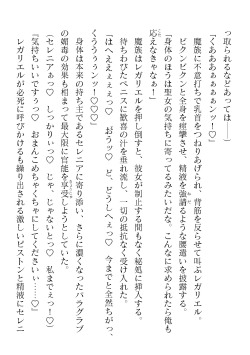 っ取られるなどあっては――」
「くああぁぁぁぁぁンッ！♡」
　魔族に不意打ちで乳首をつねりあげられ、背筋を反らせて叫ぶレガリエル。
ビクンビクンと全身を痙攣させ、精液を強請るような腰遣いを披露する。
「身体のほうは聖女の気持ちに寄ってるみたいだな。こんなに求められたら俺も
応えなきゃなぁ！」
　魔族はレガリエルを押し倒すと、彼女が制止する間もなく秘処に挿入する。
待ちわびたペニスに歓喜の汁を垂れ流し、一切の抵抗なく受け入れた。
「はへえええぇっ♡　おうっ♡　ど、どうしへぇっ♡　今までと全然ちがっ、
くううぅぅンッ！♡♡♡」
　身体は本来の持ち主であるセレニアに寄り添い、さらに濃くなったパラグラブ
の媚毒の効果も相まって最大限に官能を享受しようとしていた。
（セレニアぁっ♡　しっかりぃっ♡　じゃ、じゃないとっ♡　私までぇっ！♡）
『気持ちいいですぅっ♡　おまんこめちゃくちゃにしてくださいぃ……♡』
　レガリエルが必死に呼びかけるも繰り出される激しいピストンと精液にセレニ